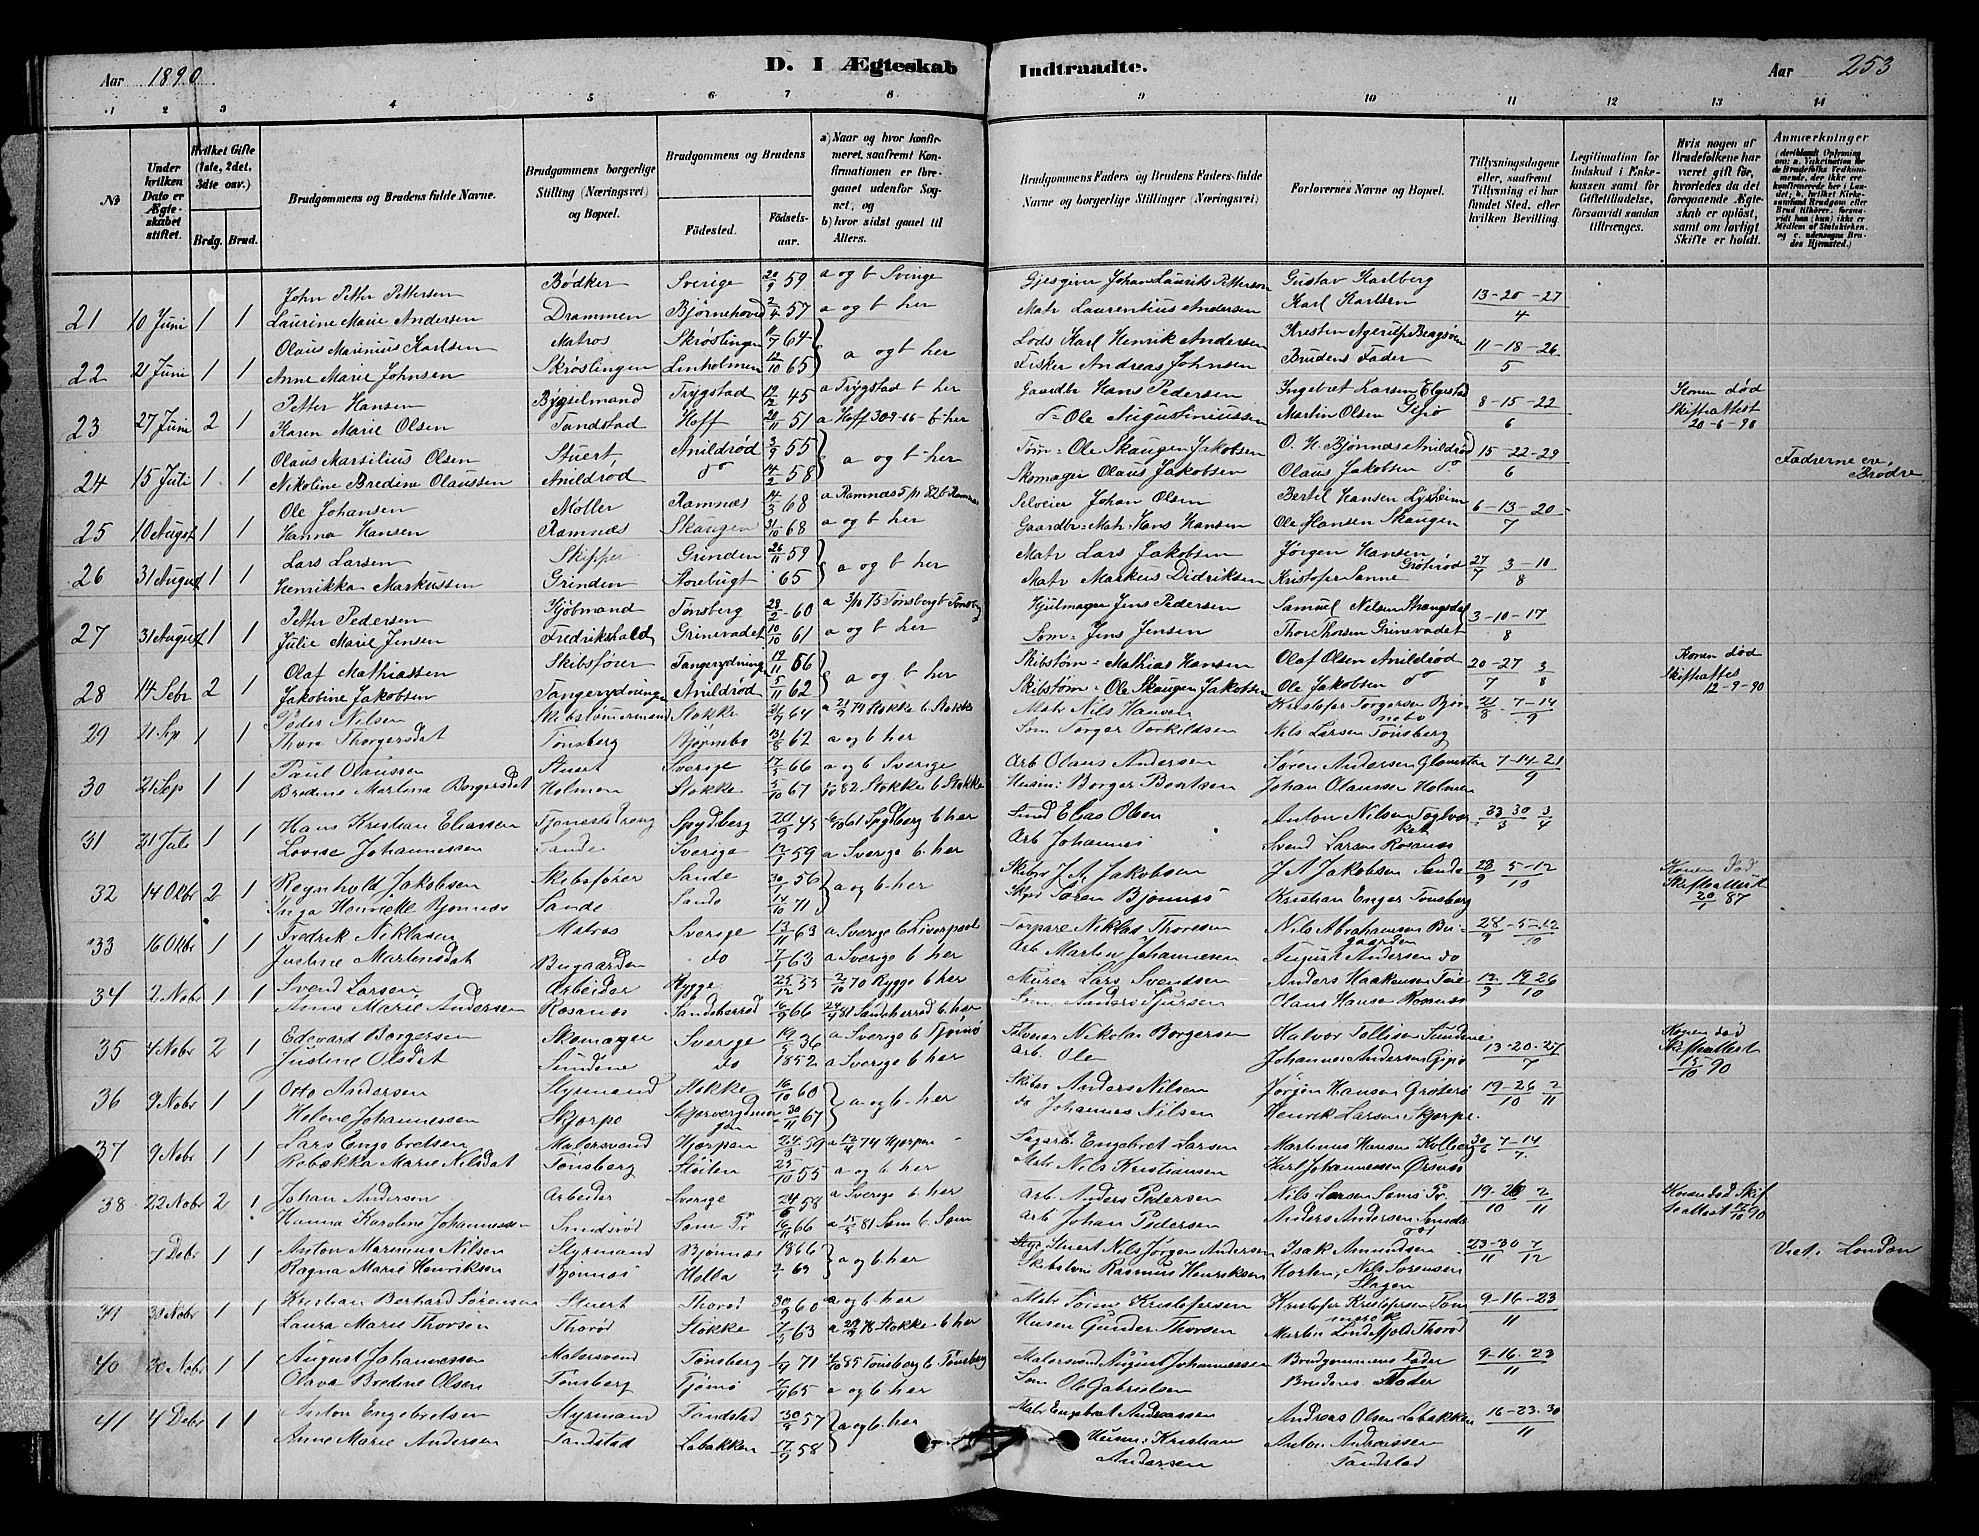 Aar 1890
D. I Ægteskab Indtraadte.
Aar 253
1 2 3 4 5 6 7 8 9 10 11 12 13 14
№
Under hvilken Dato er Ægteskabet stiftet.
Hvilket Gifte (1ste, 2det, 3die osv.)
Brdg. Brud.
Brudgommens og Brudens fulde Navne.
Brudgommens borgerlige Stilling (Næringsvei) og Bopæl.
Brudgommens og Brudens
Fødested. Fødselsaar.
a) Naar og hvor konfirmeret, saafremt Konfirmationen er foregaaet udenfor Sognet, og
b) hvor sidst gaaet til Alters.
Brudgommens Faders og Brudens Faders fulde Navne og borgerlige Stillinger (Næringsvei)
Forlovernes Navne og Bopæl.
Tillysningsdagene eller, saafremt Tillysning ei har fundet Sted, efter hvilken Bevilling.
Legitimation for Indskud i Enkekassen samt for Giftetilladelse, forsaavidt saadan tiltrænges.
Hvis nogen af Brudefolkene har været gift før, hvorledes da det foregaaende Ægteskab er opløst, samt om lovligt Skifte er holdt.
Anmærkninger
John Petter Pettersen Bødker Sverige 20/9 59 a og b Sverige Gustav Karlberg
21 10 Juni 1 1 Laurine Marie Andersen Drammen Bjørnehoved 2/4 57 a og b her Matr Laurentius Andersen Karl Karlsen 13-20-27/4
Olaus Marinius Karlsen Matros Skrøslingen 11/7 64 Lods Karl Henrik Andersen
22 21 Juni 1 1 Anne Marie Johnsen Skrøslingen Linholmen 12/10 65 a og b her Fisker Andreas Johnsen Brudens Fader 11-18-26/5
Petter Hansen Bygselmand Trygstad 19/12 45 a Trygstad b her Gaardbr Hans Pedersen
23 27 Juni 2 1 Karen Marie Olsen Tandstad Hoff 20/11 51 a Hoff 30-9-66- b her Ole Augustiniussen Martin Olsen Gipø 8-15-22/6 Konen død Skifteattest 20-6-90
Olaus Marsilius Olsen Stuert Anildrød 3/9 55 Tøm: Ole Skaugen Jakobsen O. H. Bjønnæs Anildrød
24 15 Juli 1 1 Nikoline Bredine Olaussen Anildrød do 14/2 58 a og b her Skomager Olaus Jakobsen Olaus Jakobsen do 15-22-29/6 Fædrerne ere Brødre
Ole Johansen Møller Ramnæs 14/3 68 Selveier Johan Olsen Bertil Hansen
25 10 August 1 1 Hanna Hansen Ramnæs Skaugen 31/10 68 a og b her Gaardbr: Matr Hans Hansen Ole Hansen Skaugen 6-13-20/7
Lars Larsen Skipper Grinden 26/11 59 Matr Lars Jakobsen Jørgen Hansen Grøtørød
26 31 August 1 1 Henrikka Markussen Grinden Storebugt 65 a og b her Matr Markus Didriksen Kristofer Sanne 27/7 3-10/8
Petter Pedersen Kjøbmand Tønsberg 28/2 60 Hjulmager Jens Pedersen Samuel Nilsen
27 31 August 1 1 Julie Marie Jensen Fredrikshald Grinevadet 10/10 61 a og b her Søm: Jens Jensen Thor Thorsen Grinevadet 3-10-17/8
Olaf Mathiassen Skibsfører Tangerydningen 19/11 56 Skibstøm: Mathias Hansen Olaf Olsen Anildrød Konen død
28 14 Sebr 2 1 Jakobine Jakobsen Tangerydningen Anildrød 5/11 62 a og b her Skibstøm: Ole Skaugen Jakobsen Ole Jakobsen do 20-27/7 3/8 Skifteattes 12-9-90
Peder Nilsen Skibstømermand Stokke 21/9 64 Stokke b. Stokke Matr Nils Hansen
29 21 Sep 1 1 Thora Thorgersdat Tønsberg Bjørnbo 31/8 62 a og b her Søm Torger Torkildsen Nils Larsen Tønsberg 31/8 7-14/9
Paul Olaussen Stuert Sverige 17/5 66 a og b Sverige Arb Olaus Andersen Søren Andersen
30 21 Sep 1 1 Bredine Martena Borgersdat Holmen Stokke 5/10 67 82 Stokke b Stokke Husm: Borger Bentsen Johan Olaussen Holmen 7-14-21/9
Hans Kristian Eliassen Tjenestedreng Spydberg 20/9 43 61 Spydberg b her Elias Olsen Anton Nilsen
31 31 Juli 1 1 Lovise Johannessen Sande Sverige 12/1 59 a Sverige b. her Arb Johannes Svend Larsen Rosanæs 23-30/3 3/4
Reynhold Jakobsen Skibsfører Sande 30/1 56 Skibsr J. A. Jakobsen J A Jakobsen Sande Konen død
32 14 Okbr 2 1 Inga Henrikke Bjønnæs Sande Sande 14/10 71 a og b. her Skpr Søren Bjønnæs Kristian Enger Tønsberg 28/9 5-12/10 Skifteattest 20/1 87
Fredrik Niklasen Matros Sverige 13/11 63 a Sverige b Liverpool Torpare Niklas Thoresen Nils Abrahamsen Bugaarden
33 16 Okbr 1 1 Justine Martensdat Bugaarden do 7/1 63 a Sverige b her Arb Martin Johannesen August Andersen do 28/9 5-12/10
Svend Larsen Arbeider Rygge 25/12 55 70 Rygge b her Murer Lars Svendsen Anders Haakensen
34 2 Nobr 1 1 Anne Marie Andersen Rosanæs Sandeherred 16/9 66 81 Sandeherred b. her Claus Hansen Rosanæs 12/9 19 26/10
Edevard Borgersen Skomager Sverige 19/5 36 a Sverige b Tjømø Nikolai Borgersen Halvor Tollisen Sundene Konen død
35 4 Nobr 2 1 Justine Olsdat Sundene do 1852 a Sverige b her Arb. Ole Johannes Andersen Gipø 13-20-27/7 Skifteattest 15/10 90
Otto Andersen Styrmand Stokke 16/10 60 Skibsr Anders Nilsen Jørgen Hansen
36 9 Nobr 1 1 Helene Johannessen Skjerpe 30/11 67 a og b. her do Johannes Nilsen Henrik Larsen Skjerpe 19-26/10 2/11
Lars Engebretsen Malersvend Hjerpen 24/3 59 74 Hjerpen Engebret Larsen Martinus Hansen
37 9 Nobr 1 1 Rebækka Marie Nilsdat Tønsberg Sløiten 25/10 55 a og b her Matr Nils Kristiansen Karl Johannessen Ørsnæs 30/6 7-14/7
Johan Andersen Arbeider Sverige 24/6 58 a Sverige b. her Arb Anders Pedersen Nils Larsen Sems Pr.
38 22 Nobr 2 1 Hanna Karoline Johannessen Smidsrød Sem Pr 16/6 66 a 15/5 81 Sem b. Sem Arb Johan Pedersen Anders Andersen 19-26/10 2/11 Konen død Skifteattest 90
Anton Marinius Nilsen Styrmand Bjønnæs 1866 Stuert Nils Jørgen Andersen Isak Amundsen
7 Debr 1 1 Ragna Marie Henriksen Bjønnæs Holla 69 a og b her Rasmus Henriksen Horten, Nils Sørensen Slagen 23-30/11 7/12 Viet i London
Kristian Berhard Sørensen Stuert Thorød 30/9 60 a og b her Matr Sørine Kristofersen Kristofer Kristofersen
30 Nobr 1 1 Laura Marie Thorsen Thorød Stokke 7/3 63 78 Stokke b her Husm Gunder Thorsen Martin Lindefjeld Thorød 9-16-23/11
August Johannessen Malersvend Tønsberg 71 85 Tønsberg b Tønsberg Malersvend August Johannessen Brudgommens Fader
40 30 Nobr 1 1 Olava Bredine Olsen Tønsberg Tjømø 65 a og b. her Søm Ole Gabrielsen Brudens Fader 9-16-23/11
Anton Engebretsen Styrmand Tandstad 30/8 57 Matr Engebret Andreassen Andreas Olsen Labakken
41 4 Debr 1 1 Anne Marie Andersen Tandstad Labakken 17/9 58 a og b. her Husm: Kristian Andersen Anton Andreassen Tandstad 16-23-30/11